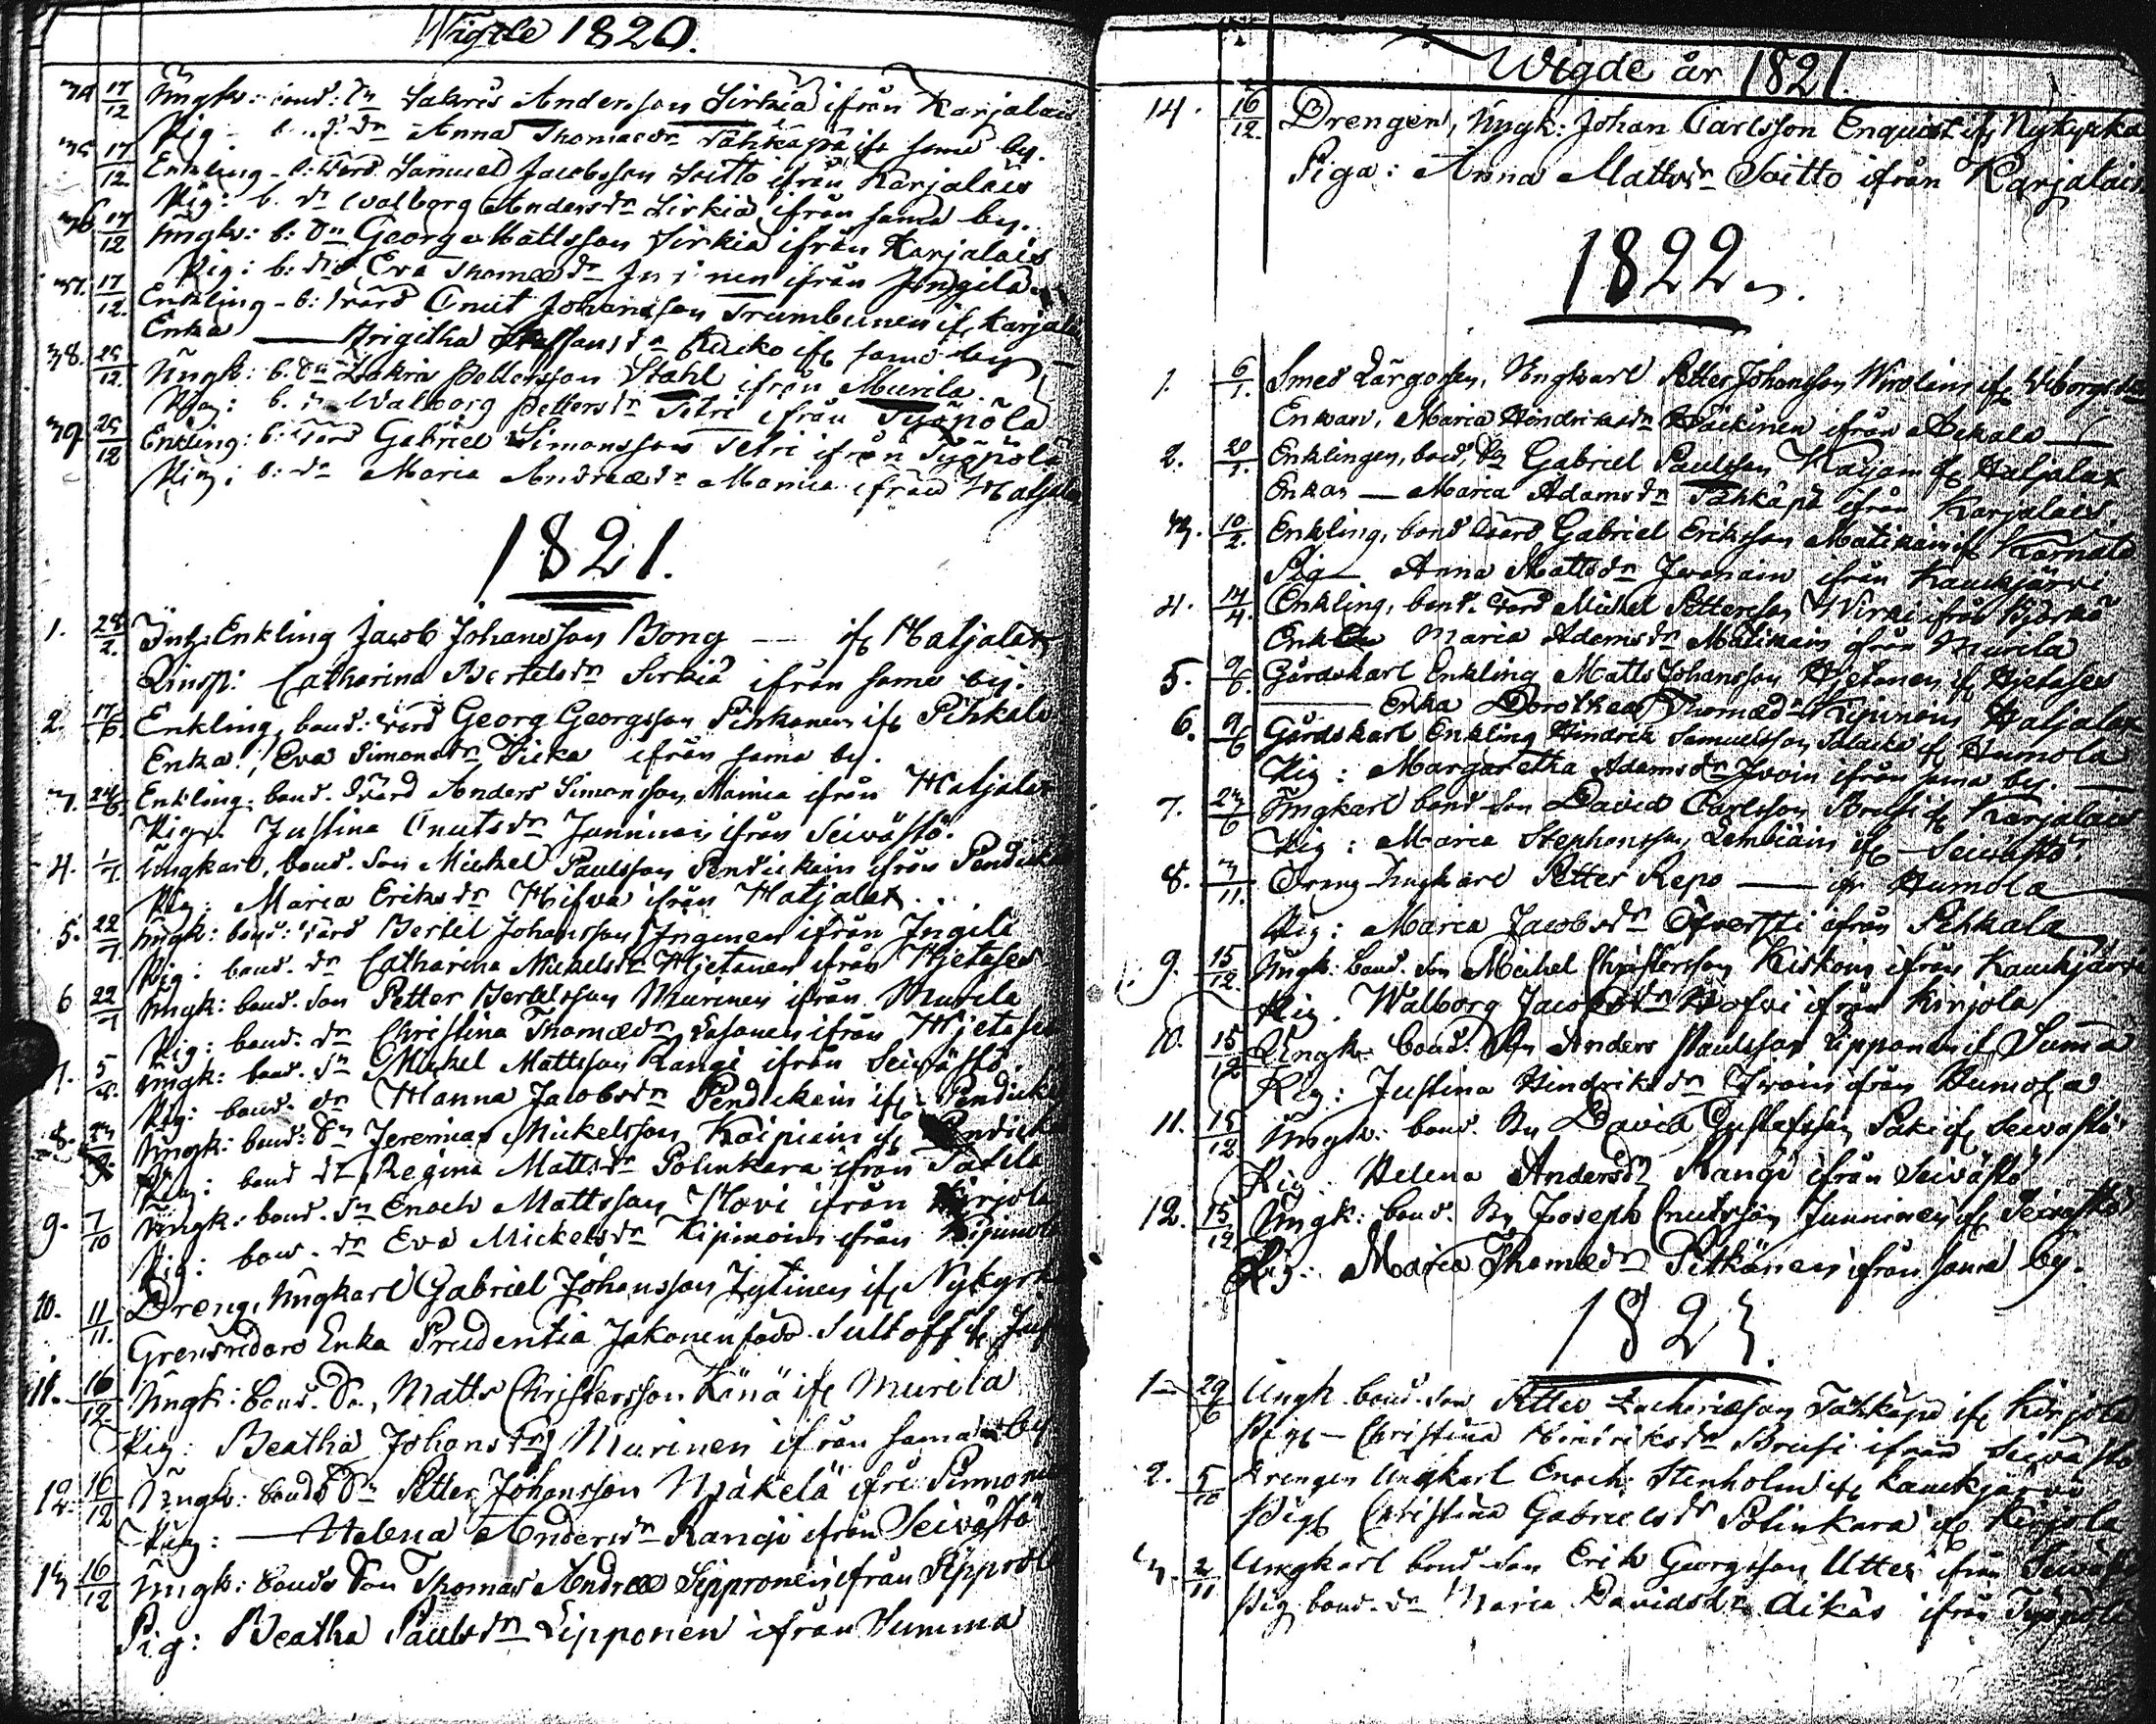 Wigde 1820.
34 17/12 Ungk: bond: Sn Sakris Andersson Sirkiä ifrån Karjalais
Pig - b. dr Anna Thomædr Tähkäpä ifr samma by.
35 17/12. Enkling - b: värd Samuel Jacobsson Soitto ifrån Karjalais
Pig: b. dr Walborg Andersdr Sirkiä ifrån samma by.
36 17/12 Ungk: b: Sn Georg Mattsson Sirkiä ifrån Karjalais
Pig: b: dr Eva Thomædr ifrån Ingila
37. 17/12. Enkling - b: värd Cnut Johansson Trumbunen ifr Karjalais
Enka Brigitha Staffansdr Kucko ifr samma by
38. 25/12. Ungk: b. Sn Zakris Pettersson Stahl ifrån Murila
Pig: b. dr Walborg Pettersdr Tetri ifrån Työpölä
39. 25/12 Enkling: b: värd Gabriel Simonsson Tetri ifrån Työpölä
Pig: b: dr Maria Andreædr Mamia ifrån Hatjalax
1821.
1. 28/2. Enkling Jacob Johansson Bong — ifr Hatjalax
Qinsp: Catharina Bertelsdr Sirkiä ifrån samme by.
2. 17/6. Enkling, bond: värd Georg Georgsson Pihkanen ifr Pihkala
Enka: Eva Simonsdr Sicka ifrån samma by.
3. 24/6. Enkling, bond. värd Anders Simonsson Mamia ifrån Hatjalax
Pig: Justina Cnutsdr Junninen ifrån Seivästö.
4. 1/7. Ungkarl, bond. Son Michel Paulsson Pendikain ifrån Pendikälä
Pig: Maria Eriksdr Hifva ifrån Hatjalax.
5. 22/7. Ungk: bond: värd Bertil Johansson Inginen ifrån Ingilä
Pig: bond. dr Catharina Mickelsdr Hjetanen ifrån Hjetases
6 22/7 Ungk: bond. Son Petter Bertelsson Murinen ifrån Murila
Pig: bond. dr Christina Thomædr Lasanen ifrån Hjetases
7. 5/8. Ungk: bond. Sn Mickel Mattsson Rangi ifrån Seivästö.
Pig: bond. dr Hanna Jacobsdr Pendikain ifr Pendikälä
8. 23/9. Ungk: bond: Sn Jeremias Mickelsson Kaipiain ifr
Pig: bond dr Regina Mattsdr Polinkara ifrån
9. 7/10 Ungk: bond. Sn Enoch Mattsson Hovi ifrån Kirjola
Pig: bow. dr Eva Mickelsdr Kipinoin ifrån Kipinola
10. 11/11. Dreng, Ungkarl Gabriel Johansson Tytinen ifr Nykyrka
Grensridare Enka Prudentia Jakonen född Sultoff ifr
11. 16/12. Ungk: bond. Sn, Matts Christersson Känä ifr Murila
Pig: Beatha Johansdr Murinen ifrån samma by
12. 16/12 Ungk: bonds Sn Petter Johansson Njäkelä ifrå
Pig: — Helena Andersdr Rangi ifrån Seivästö
13 16/12 Ungk: bonds Son Thomas Andreæ Sippronen ifrån Sipprola
Pig: Beatha Paulsdr Lipponen ifrån Summa
Wigde år 1821.
14. 16/12. Drengen, Ungk: Johan Carlsson Enquist ifr Nykyrka
Piga: Anna Mattsdr Soitto ifrån Karjalais
1822.
1. 6/1. Smed Lärgossen, Ungkarl Petter Johansson Wirolain ifr Wiborgs
Enkan, Maria Hindriksdr Häickinen ifrån Aekala
2. 20/1. Enklingen, bond, Sn Gabriel Paulsson Karjam ifr Hatjalax
Enkan — Maria Adamsdr Tähkäpä ifrån Karjalais.
3. 10/2. Enkling, bond värd Gabriel Eriksson Matikain ifr
Pig — Anna Mattsdr Ivanain ifrån Kaukjärvi
4. 14/4. Enkling, bond. värd Michel Pettersson Wirki ifrån Björkö
Enka Maria Adamsdr Matikain ifrån Murila
5. 9/6. Gårdskarl Enkling Matts Johansson Hjetanen ifr Hjetases
— Enka Dorothea Thomædr Kipinoin Hatjalax
6. 9/6 Gårdskarl Enkling Hindrik Samuelsson Salacka ifr Humola
Pig: Margaretha Adamsdr Ivoin ifrån sama by.
7. 23/6 Ungkarl bond son David Carlsson Brusi ifr Karjalais
Pig: Maria Stephansson Lembiäin ifr Seivästö.
8. 3/11. Dreng Ungkarl Petter Repo — ifr Humola
Pig: Maria Jacobsdr Öfversti ifrån Pihkala
9. 15/12. Ungk: bond. Son Michel Christersson Kiskoin ifrån Kaukjärvi
Pig. Walborg Jacobsdr Hofvi ifrån Kirjola
10. 15/12 Ungk: bond. Sn Anders Paulsson Lipponen if Suma
Pig: Justina Hindriksdr Ivoin ifrån Humola
11. 15/12 Ungk: bond. Sn David Gustafsson Paki ifr Seivästö
Pig: Helena Andersdr Rangi ifrån Seivästö
12. 15/12 Ungk: bond. Sn Joseph Cnutsson Junninen ifr Seivästö
Pig: Maria Thomædr Pitkänen ifrån sama by.
1823.
1 29/6 Ungk. bond. son Petter Zachrisson Tähkäpä ifr Kirjola
Pig — Christina Hindriksdr Brusi ifrån Seivästö
2. 5/10 Drengen Ungkarl Enoch Stenholm ifr Kaukjärvi
Pig Christina Gabrielsdr Polinkara ifr Kirjola
3. 2/11 Ungkarl bond son Erik Georgsson Utter ifrån Seivästö
Pig bond. dr Maria Davidsdr Aikäs ifrån Työpölä